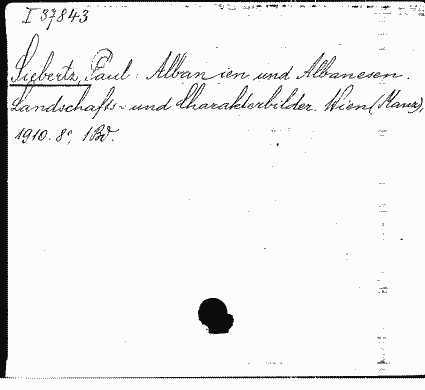 I 37843
Siebertz, Paul: Albanien und Albanesen.
Landschafts- und Charakterbilder. Wien (Manz),
1910. 8°, 1 Bd.